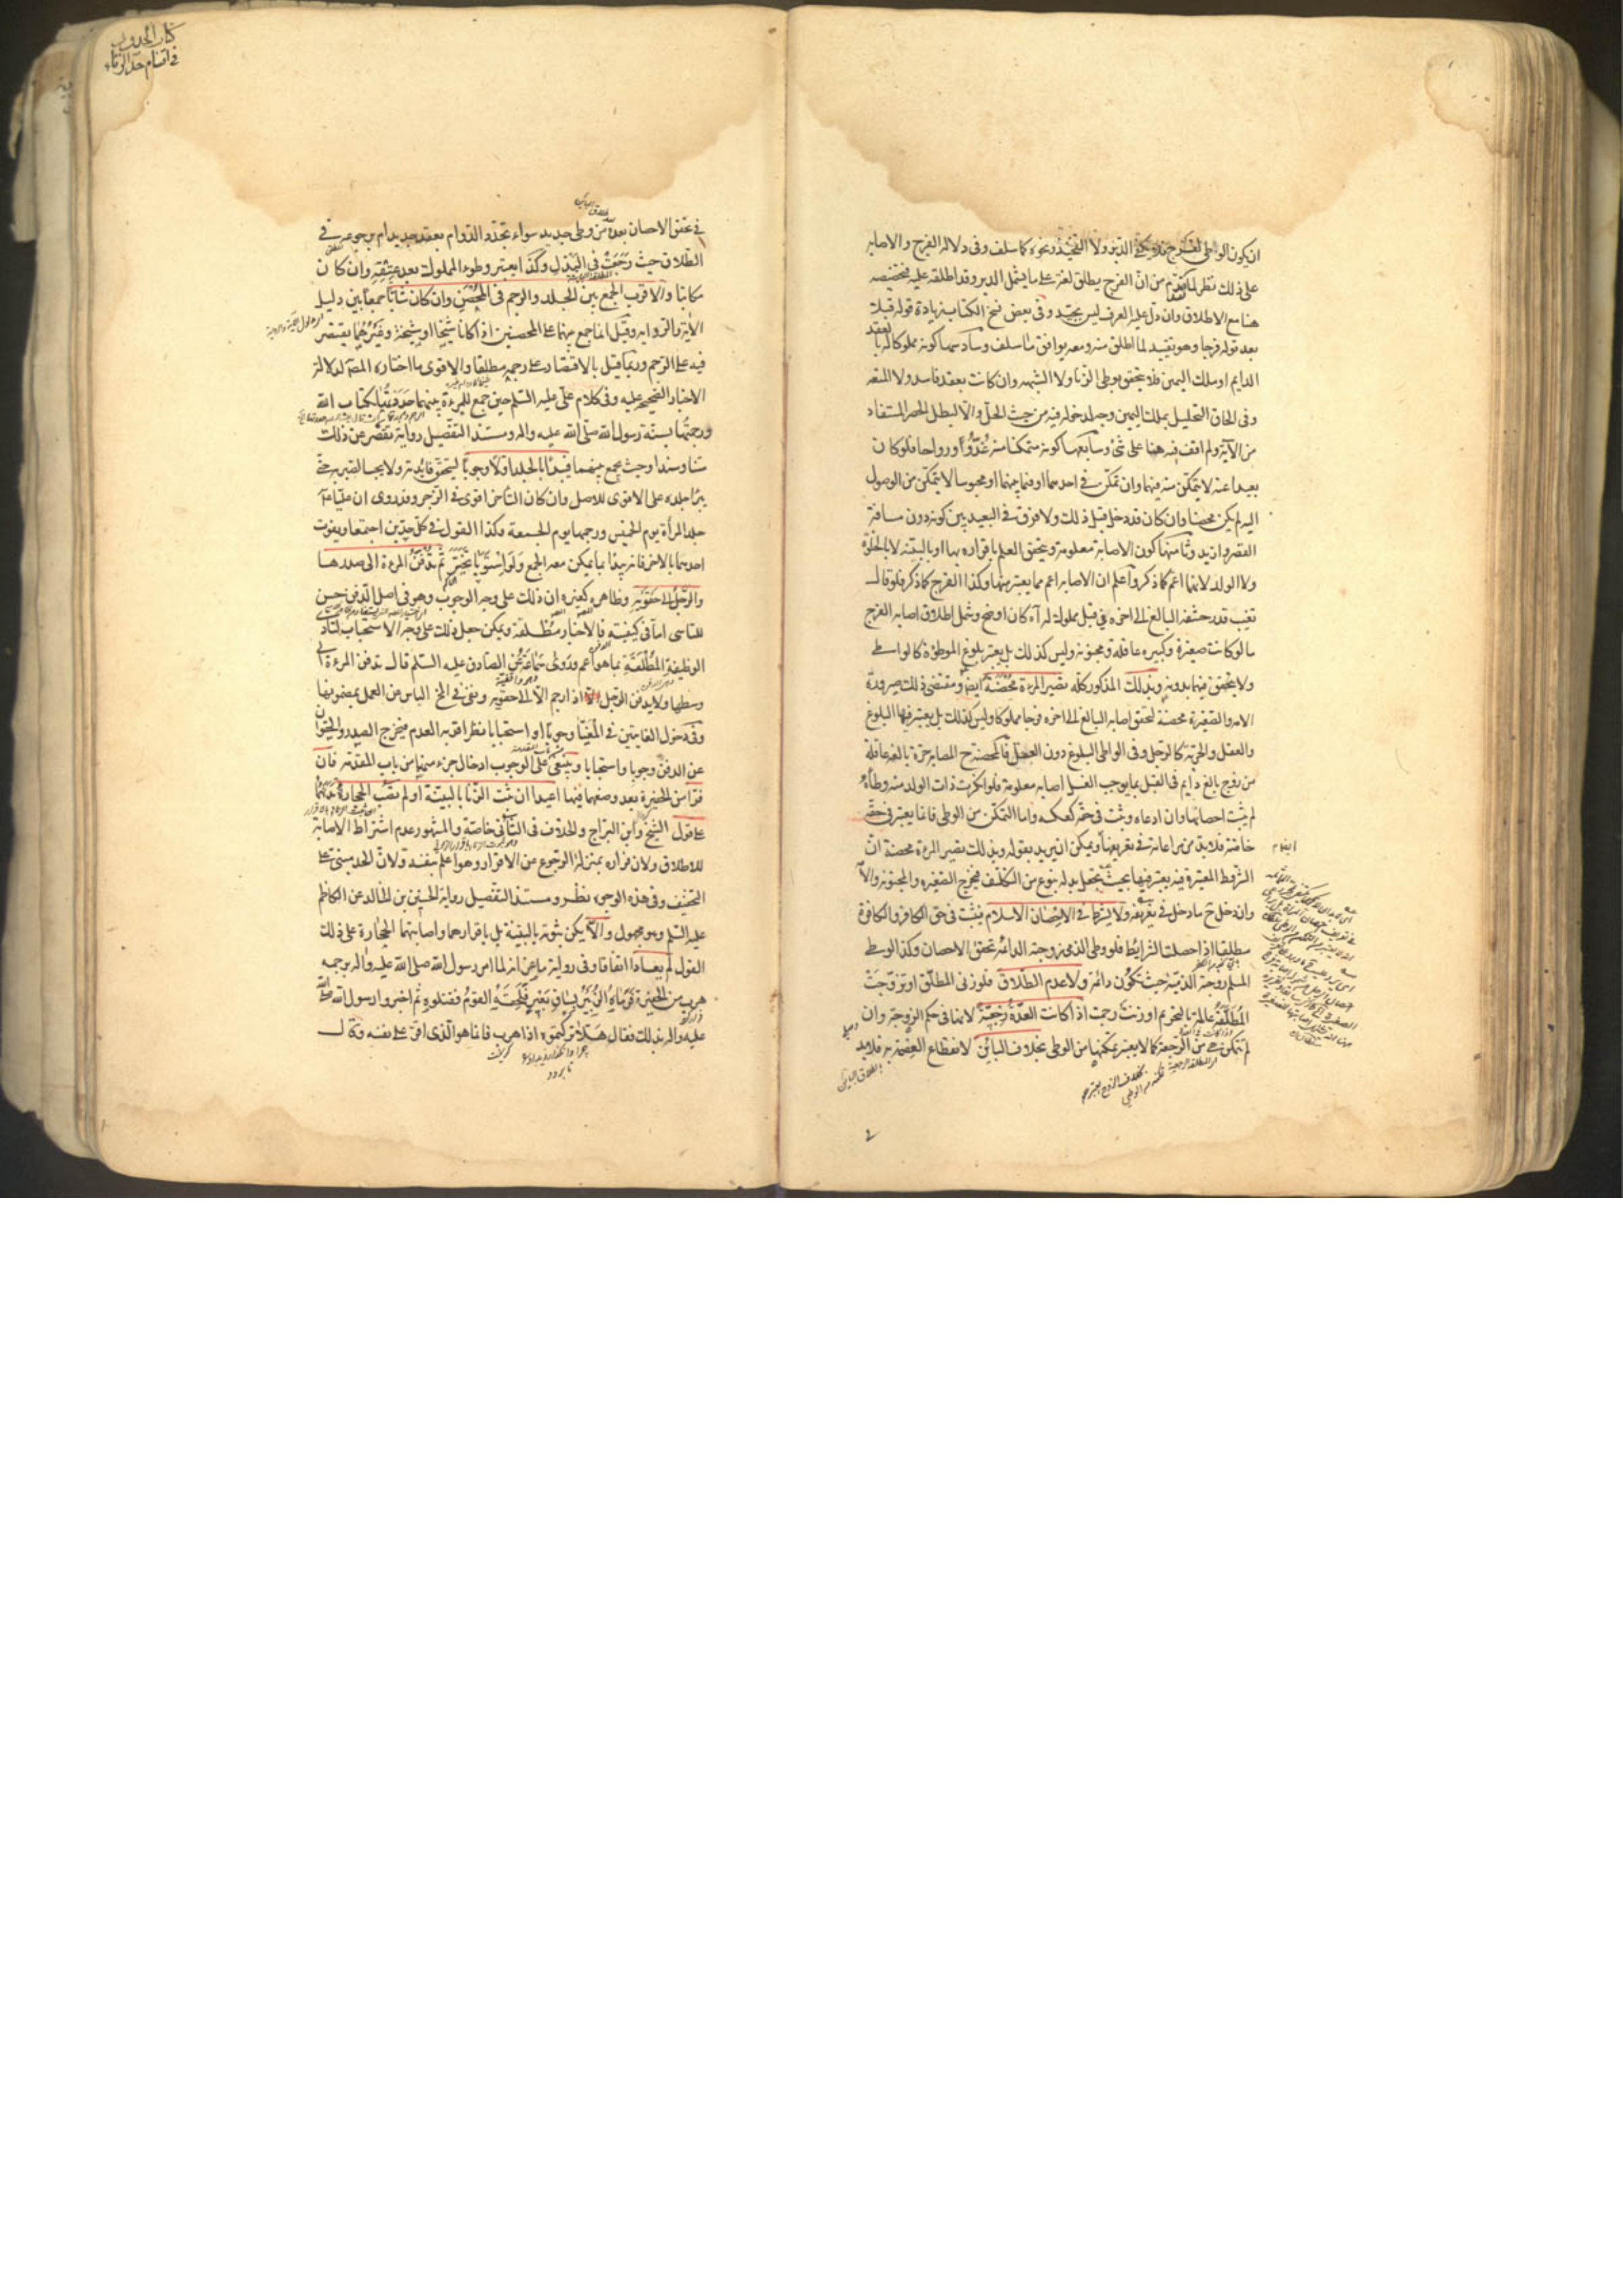 ان يكون الواطى الفرج فلا يكفى الدبر ولا التفخيذ ونحوه كما سلف وفى دلالة الفرج والاصابة
على ذلك نظر لما تقدم من ان الفرج يطلق لغة على ما يشمل الدبر وقد اطلقه عليه فتخصيصه
هنا مع الاطلاق وان دل عليه العرف ليس بجيد وفى بعض نسخ الكتاب زيادة قوله قبلا
بعد قوله فرجا وهو تقييد لما اطلق منه ومعه يوافق ما سلف وسادسها كونه مملوكا له بالعقد
الدايم او ملك اليمين فلا يتحقق بوطى الزنا ولا الشبهة وان كانت بعقد فاسد ولا المتعة
وفى الحاق التحليل بملك اليمين وجه لدخوله فيه من حيث الحل والا لبطل الحصر المستفاد
من الآية ولم اقف فيه هنا على شئ وسابعها كونه متمكنا منه غدوا ورواحا فلو كان
بعيدا عنه لا يتمكن منه فيهما وان تمكن فى احدهما او فيما بينهما او محبوسا لا يتمكن من الوصول
اليه لم يكن محصنا وان كان قد دخل قبل ذلك ولا فرق فى البعيد بين كونه دون مسافة
القصر وازيد وثامنها كون الاصابة معلومة ويتحقق العلم باقراره بها او بالبينة لا بالخلوة
ولا الولد لانهما اعم كما ذكر واعلم ان الاصابة اعم مما يعتبر منها وكذا الفرج كما ذكر فلو قال
تغيب قدر حشفة البالغ الى اخره فى قبل مملوك له آه كان اوضح وشمل اطلاق اصابة الفرج
ما لو كانت صغيرة وكبيرة عاقلة ومجنونة وليس كذلك بل يعتبر بلوغ الموطوءة كالواطى
ولا يتحقق فيهما بدونه وبذلك المذكور كله تصير المرءة محصنة ايضا ومقتضى ذلك صيرورة
الامة والصغيرة محصنة لتحقق اصابة البالغ الى اخره فرجا مملوكا وليس كذلك بل يعتبر فيها البلوغ
والعقل والحرية كالرجل وفى الواطى البلوغ دون العقل فالمحصنة ح المصابة حرة بالغة عاقلة
من زوج بالغ دايم فى القبل بما يوجب الغسل اصابة معلومة فلو انكرت ذات الولد منه وطأه
لم يثبت احصانها وان ادعاه ويثبت فى حقه كعكسه واما التمكن من الوطى فانما يعتبر فى حقه
خاصة فلا بد من مراعاته فى تعريفها ويمكن ان يريد بقوله وبذلك تصير المرءة محصنة ان
الشروط المعتبرة فيه يعتبر فيها بحيث تجعل بدله بنوع من التكلف فيخرج الصغيرة والمجنونة والامة
وان دخل ح ما دخل فى تعريفه ولا يشترط فى الاحصان الاسلام فيثبت فى حق الكافر والكافرة
مطلقا اذا حصلت الشرايط فلو وطى الذمى زوجته الدائمة تحقق الاحصان وكذا لو وطى
المسلم زوجته الذمية حيث تكون دائمة ولا عدم الطلاق فلو زنى المطلق او تزوجت
المطلقة عالمة بالتحريم او زنت رجمت اذا كانت العدة رجعية لانها فى حكم الزوجة وان
لم تتمكن هى من الرجعة كما لا يعتبر تمكنها من الوطى بخلاف البائن لانقطاع العصمة به فلا بد
كتاب الحدود
فى اقسام حد الزنا
فى تحقق الاحصان بعده من وطى جديد سواء تجدد الدوام بعقد جديد ام برجوعه فى
الطلاق حيث رجعت فى البذل وكذا يعتبر وطوء المملوك بعد عتقه وان كان
مكاتبا والاقرب الجمع بين الجلد والرجم فى المحصن وان كان شابا جمعا بين دليل
الآية والرواية وقيل انما جمع بينهما على المحصنين اذا كانا شيخا او شيخة وغيرهما يقتصر
فيه على الرجم وربما قيل بالاقتصار على رجمه مطلقا والاقوى ما اختاره المصنف لدلالة
الاخبار الصحيحة عليه وفى كلام على عليه السلم حين جمع للمرءة بينهما حددتها بكتاب الله
ورجمتها بسنة رسول الله صلى الله عليه واله ومستند التفصيل رواية تقصر عن ذلك
متنا وسندا وحيث يجمع بينهما فيبدأ بالجلد اولا وجوبا لتحقق فائدته ولا يجب الصبر به حتى
يبرا جلده على الاقوى للاصل وان كان التأخر اقوى فى الزجر وقد روى ان عليا ع
جلد المرأة يوم الخميس ورجمها يوم الجمعة وكذا القول فى كل حدين اجتمعا ويفوت
احدهما بالاخر فانه يبدأ بما يمكن معه الجمع ولو استويا تخير ثم تدفن المرءة الى صدرها
والرجل الى حقويه وظاهره كغيره ان ذلك على وجه الوجوب وهو فى اصل الدفن حسن
للتاسى اما فى كيفيته فالاخبار مطلقة ويمكن جعل ذلك على وجه الاستحباب لتأدى
الوظيفة المطلقة بما هو اعم وروى سماعة عن الصادق عليه السلم قال تدفن المرءة الى
وسطها ولا يدفن الرجل اذا رجم الا الى حقويه ونفى فى المخ الباس عن العمل بمضمونها
وفى دخول الغايتين فى المغيا وجوبا او استحبابا نظر اقربه العدم فيخرج الصدر والحقوان
عن الدفن وجوبا واستحبابا وينبغى على الوجوب ادخال جزء منهما من باب المقدمة فان
فرا من الحفيرة بعد وضعهما فيها اعيدا ان ثبت الزنا بالبينة او لم يصب الحجارة بدنهما
على قول الشيخ وابن البراج والخلاف فى الثانى خاصة والمشهور عدم اشتراط الاصابة
للاطلاق ولان فراره بمنزلة الرجوع عن الاقرار وهو اعلم بنفسه ولان الحد مبنى على
التخفيف وفى هذه الوجوه نظر ومستند التفصيل رواية الحسين بن الخالد عن الكاظم
عليه السلم وهو مجهول والا يكن ثبوته بالبينة بل باقرارهما واصابتهما الحجارة على ذلك
القول لم يعادا اتفاقا وفى رواية ماعز انه لما امر رسول الله صلى الله عليه واله برجمه
هرب من الحفيرة فرماه الزبير بساق بعير فلحقه القوم فقتلوه ثم اخبروا رسول الله صلى الله
عليه واله بذلك فقال هلا تركتموه اذا هرب فانما هو الذى اقر على نفسه وقال